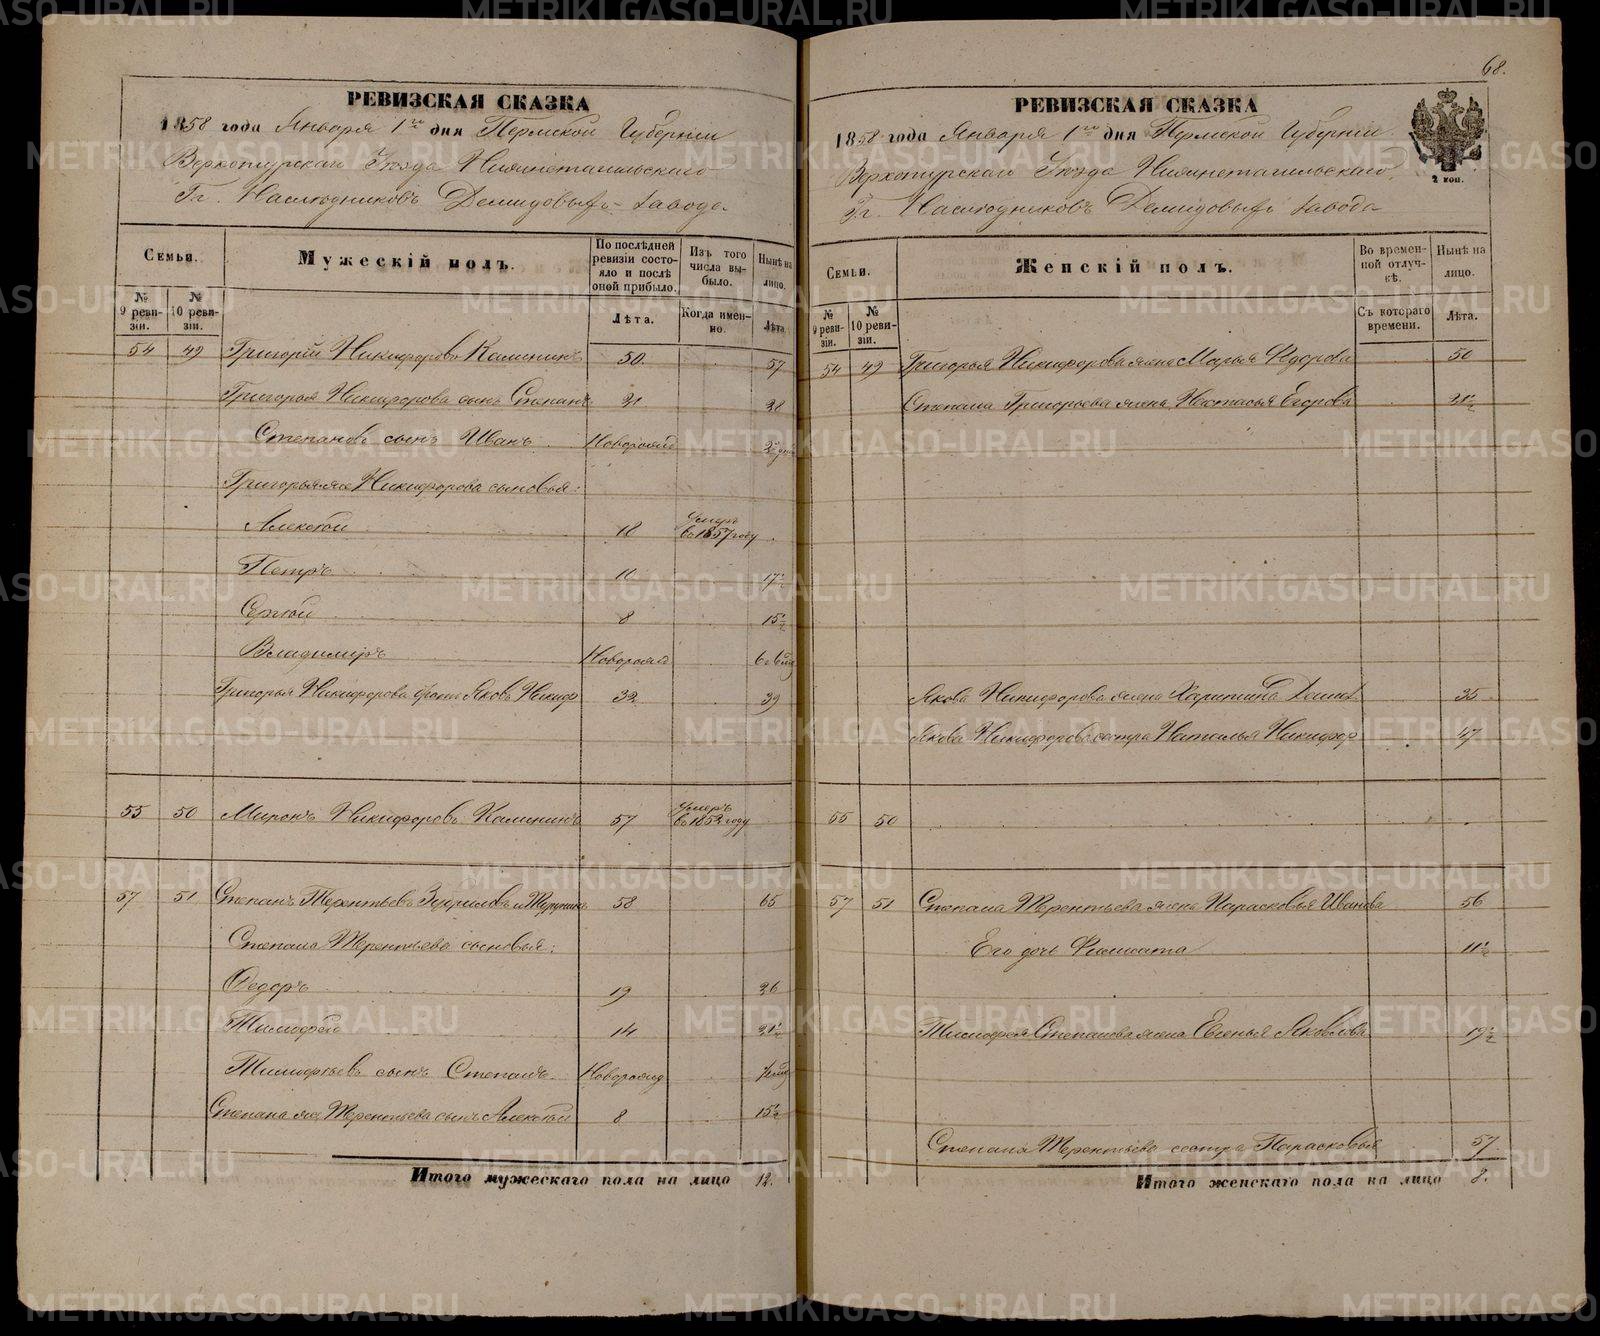 68.
РЕВИЗСКАЯ СКАЗКА
1858 года Января 1го дня Пермской Губернiи
Верхотурскаго Уѣзда Нижнетагильскаго
Гг. Наслѣдниковъ Демидовыхъ завода
Семьи.
Мужескiй полъ.
По послѣдней ревизiи состояло и послѣ оной прибыло.
Изъ того числа выбыло.
Нынѣ на лицо.
№ 9 ревизiи.
№ 10 ревизiи.
Лѣта.
Когда именно.
Лѣта.
54 49 Григорiй Никифоровъ Калининъ 50. 57
Григорья Никифорова сынъ Степанъ 21 28
Степановъ сынъ Иванъ Новорожд
Григорья же Никифорова сыновья:
Алексѣй 18 Умеръ въ 1857 году
Петръ 10 17½
Сергѣй 8 15½
Владимiръ Новорожд
Григорья Никифорова братъ Яковъ Никиф 32 39
55 50 Миронъ Никифоровъ Калининъ 57 Умеръ въ 1852 году
57 51 Степанъ Терентьевъ 58 65
Степана Терентьева сыновья:
Федоръ 19 26
Тимофей 14 21½
Тимофѣевъ сынъ Степанъ Новорожд
Степана же Терентьева сынъ Алексѣй 8 15½
Итого мужескаго пола на лицо 12.
РЕВИЗСКАЯ СКАЗКА
1858 года Января 1го дня Пермской Губернiи
Верхотурскаго Уѣзда Нижнетагильскаго
Гг. Наслѣдниковъ Демидовыхъ завода
2 коп.
Семьи.
Женскiй полъ.
Во временной отлучкѣ.
Нынѣ на лицо.
№ 9 ревизiи.
№ 10 ревизiи.
Съ котораго времени.
Лѣта.
54 49 Григорья Никифорова жена Марья Федорова 50
Степана Григорьева жена Настасья Егорова 21½
Якова Никифорова жена Харитина 35
Якова Никифорова сестра Наталья Никифор 47
55 50
57 51 Степана Терентьева жена Парасковья Иванова 56
Его дочь 11½
Тимофея Степанова жена Евгенья Яковлева 19½
Степана Терентьева сестра Парасковья 57
Итого женскаго пола на лицо 8.
METRIKI.GASO-URAL.RU